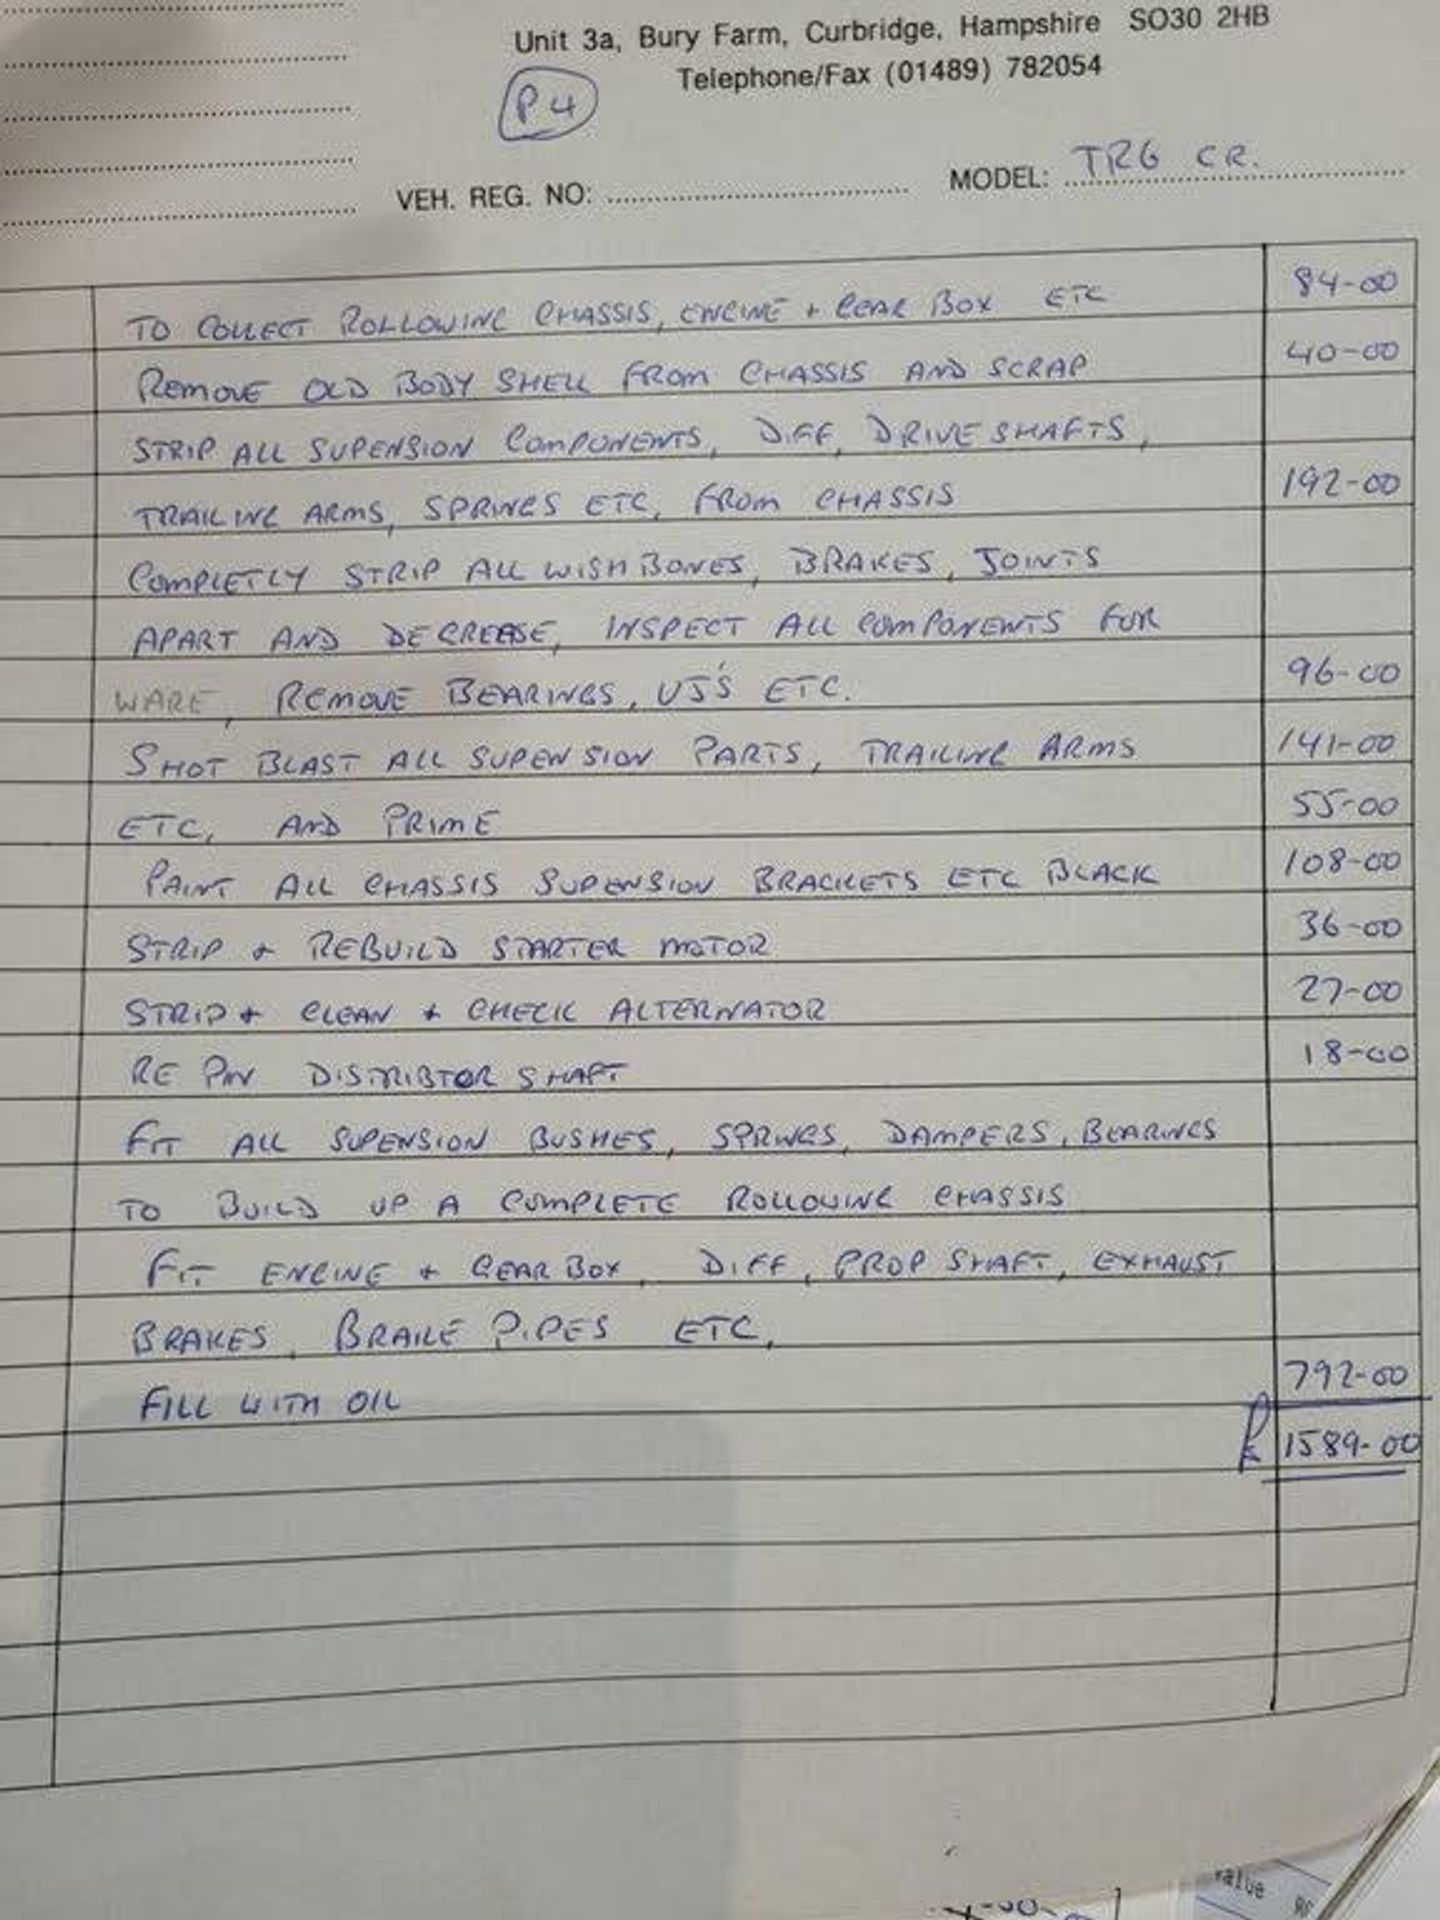 Unit 3a, Bury Farm, Curbridge, Hampshire SO30 2HB
Telephone/Fax (01489) 782054
P4
VEH. REG. NO: MODEL: TR6 CR.
TO COLLECT ROLLOWING CHASSIS, ENGINE + GEAR BOX ETC 84-00
REMOVE OLD BODY SHELL FROM CHASSIS AND SCRAP 40-00
STRIP ALL SUPENSION COMPONENTS, DIFF, DRIVE SHAFTS,
TRAILING ARMS, SPRINGS ETC, FROM CHASSIS 192-00
COMPLETLY STRIP ALL WISHBONES, BRAKES, JOINTS
APART AND DEGREESE, INSPECT ALL COMPONENTS FOR
WARE, REMOVE BEARINGS, UJ'S ETC. 96-00
SHOT BLAST ALL SUPENSION PARTS, TRAILING ARMS 141-00
ETC, AND PRIME 55-00
PAINT ALL CHASSIS SUPENSION BRACKETS ETC BLACK 108-00
STRIP + REBUILD STARTER MOTOR 36-00
STRIP + CLEAN + CHECK ALTERNATOR 27-00
RE PIN DISTRIBTOR SHAFT 18-00
FIT ALL SUPENSION BUSHES, SPRINGS, DAMPERS, BEARINGS
TO BUILD UP A COMPLETE ROLLOWING CHASSIS
FIT ENGINE + GEAR BOX, DIFF, PROP SHAFT, EXHAUST
BRAKES, BRAKE PIPES ETC,
FILL WITH OIL 792-00
£ 1589-00
value